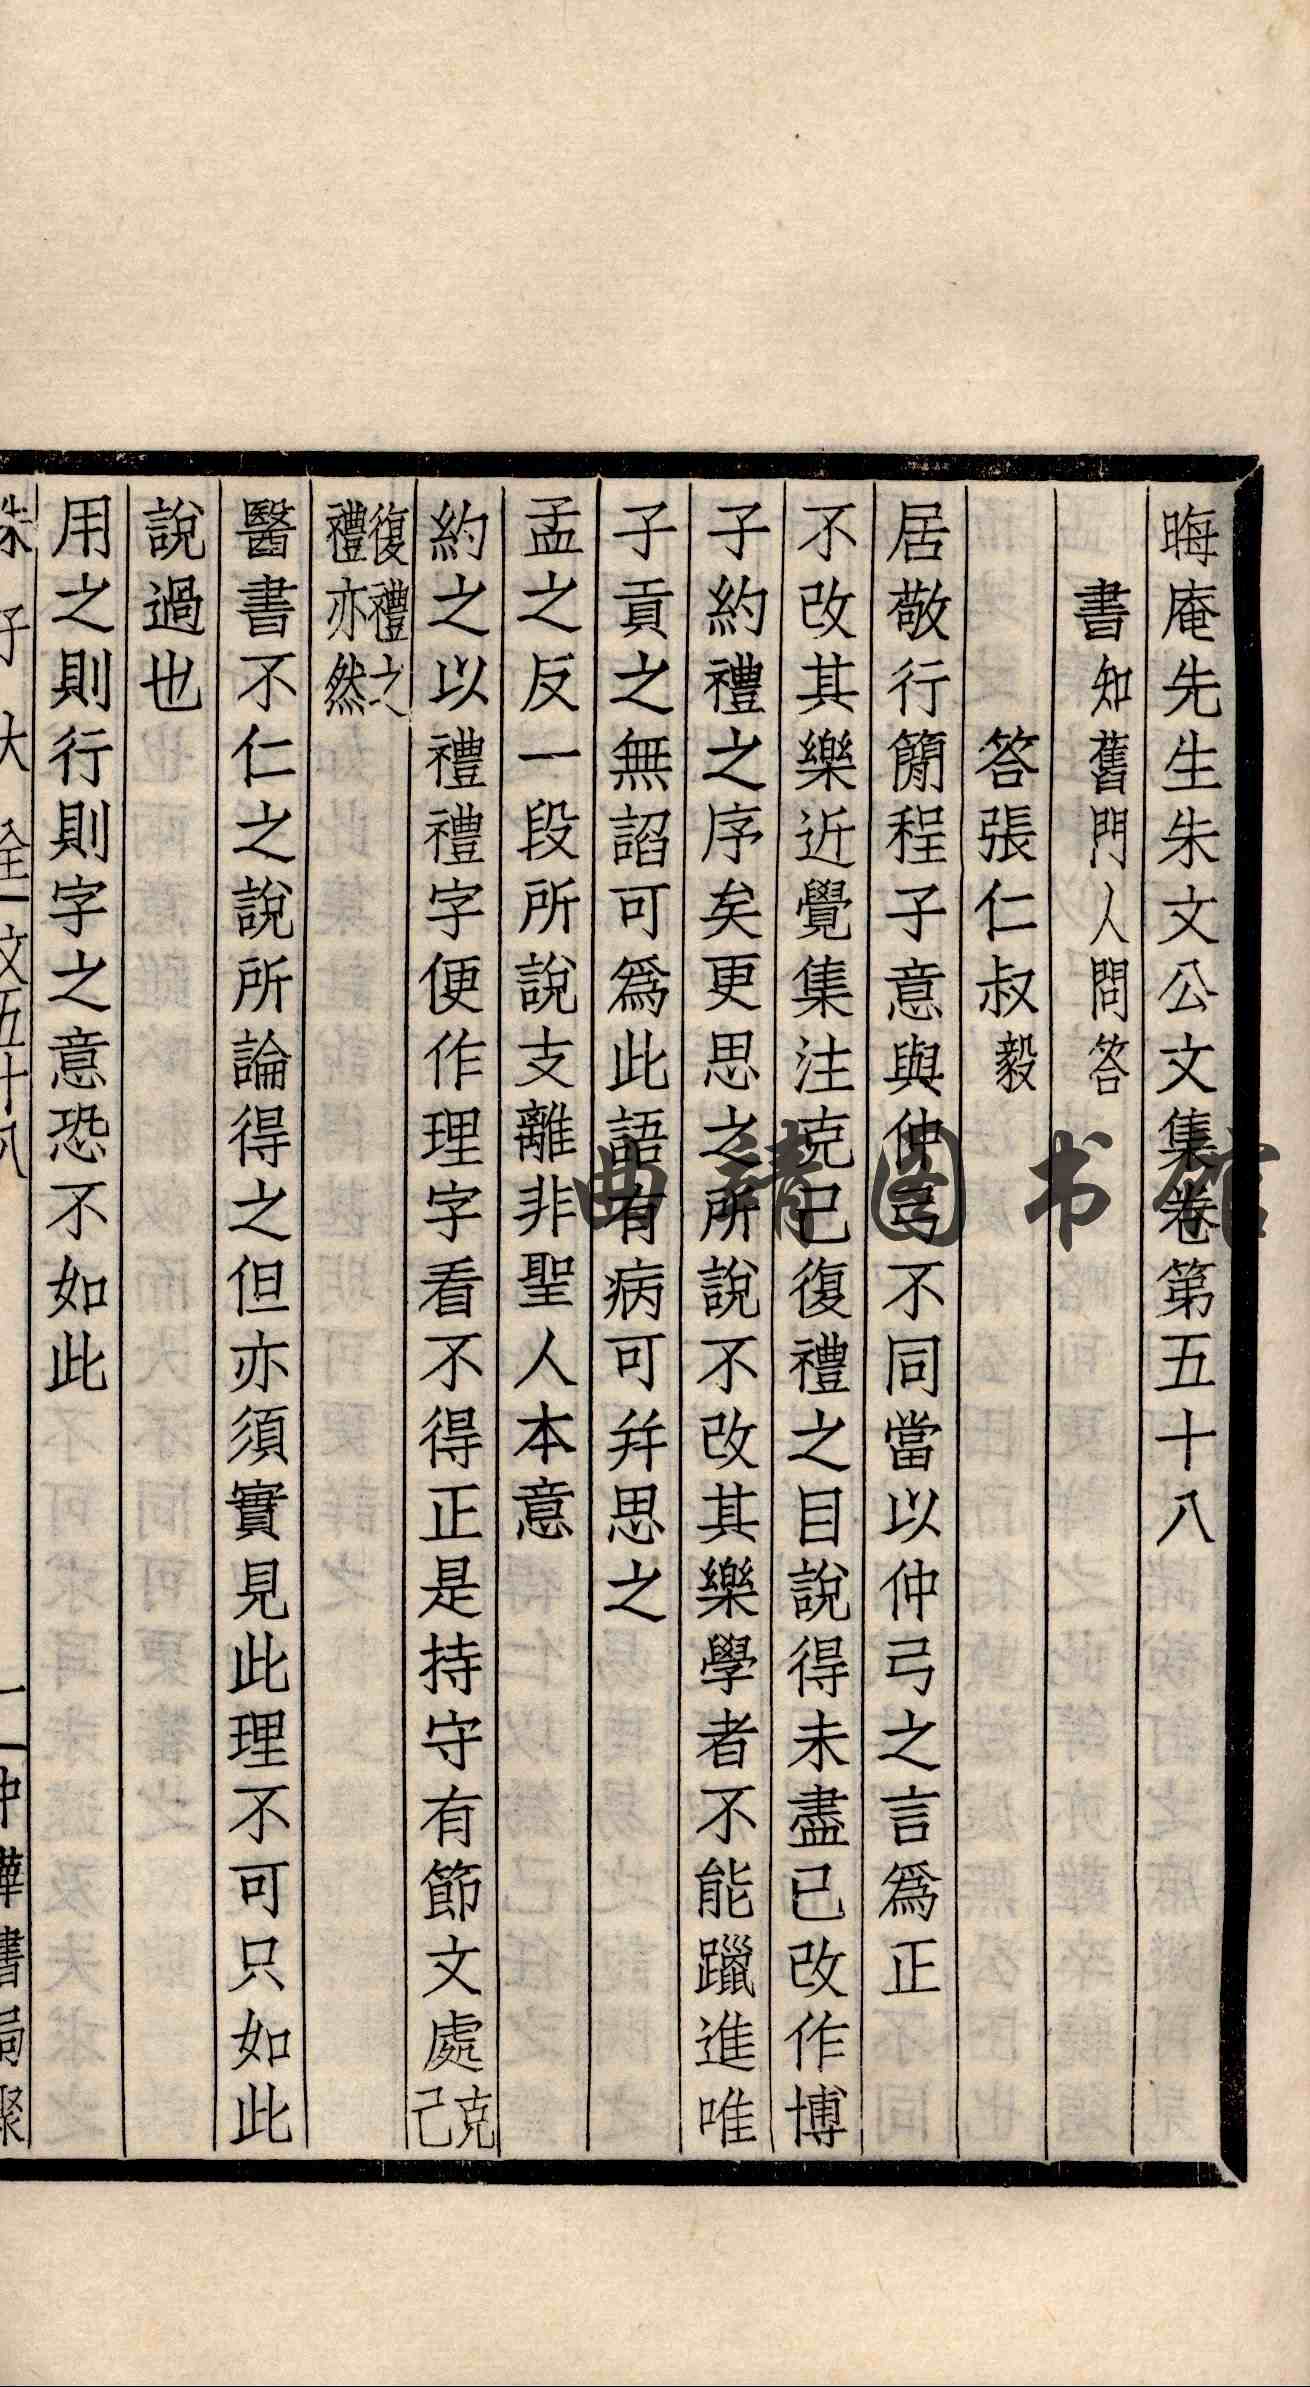 晦庵先生朱文公文集卷第五十八
書知舊門人問答
答張仁叔毅
居敬行簡程子意與仲弓不同當以仲弓之言爲正
不改其樂近覺集注克己復禮之目說得未盡已改作博
子約禮之序矣更思之所說不改其樂學者不能躐進唯
子貢之無諂可爲此語有病可幷思之
孟之反一段所說支離非聖人本意
約之以禮禮字便作理字看不得正是持守有節文處克己
復禮之禮亦然
醫書不仁之說所論得之但亦須實見此理不可只如此
說過也
用之則行則字之意恐不如此
朱子大全文五十八
一中華書局聚
曲靖图书馆